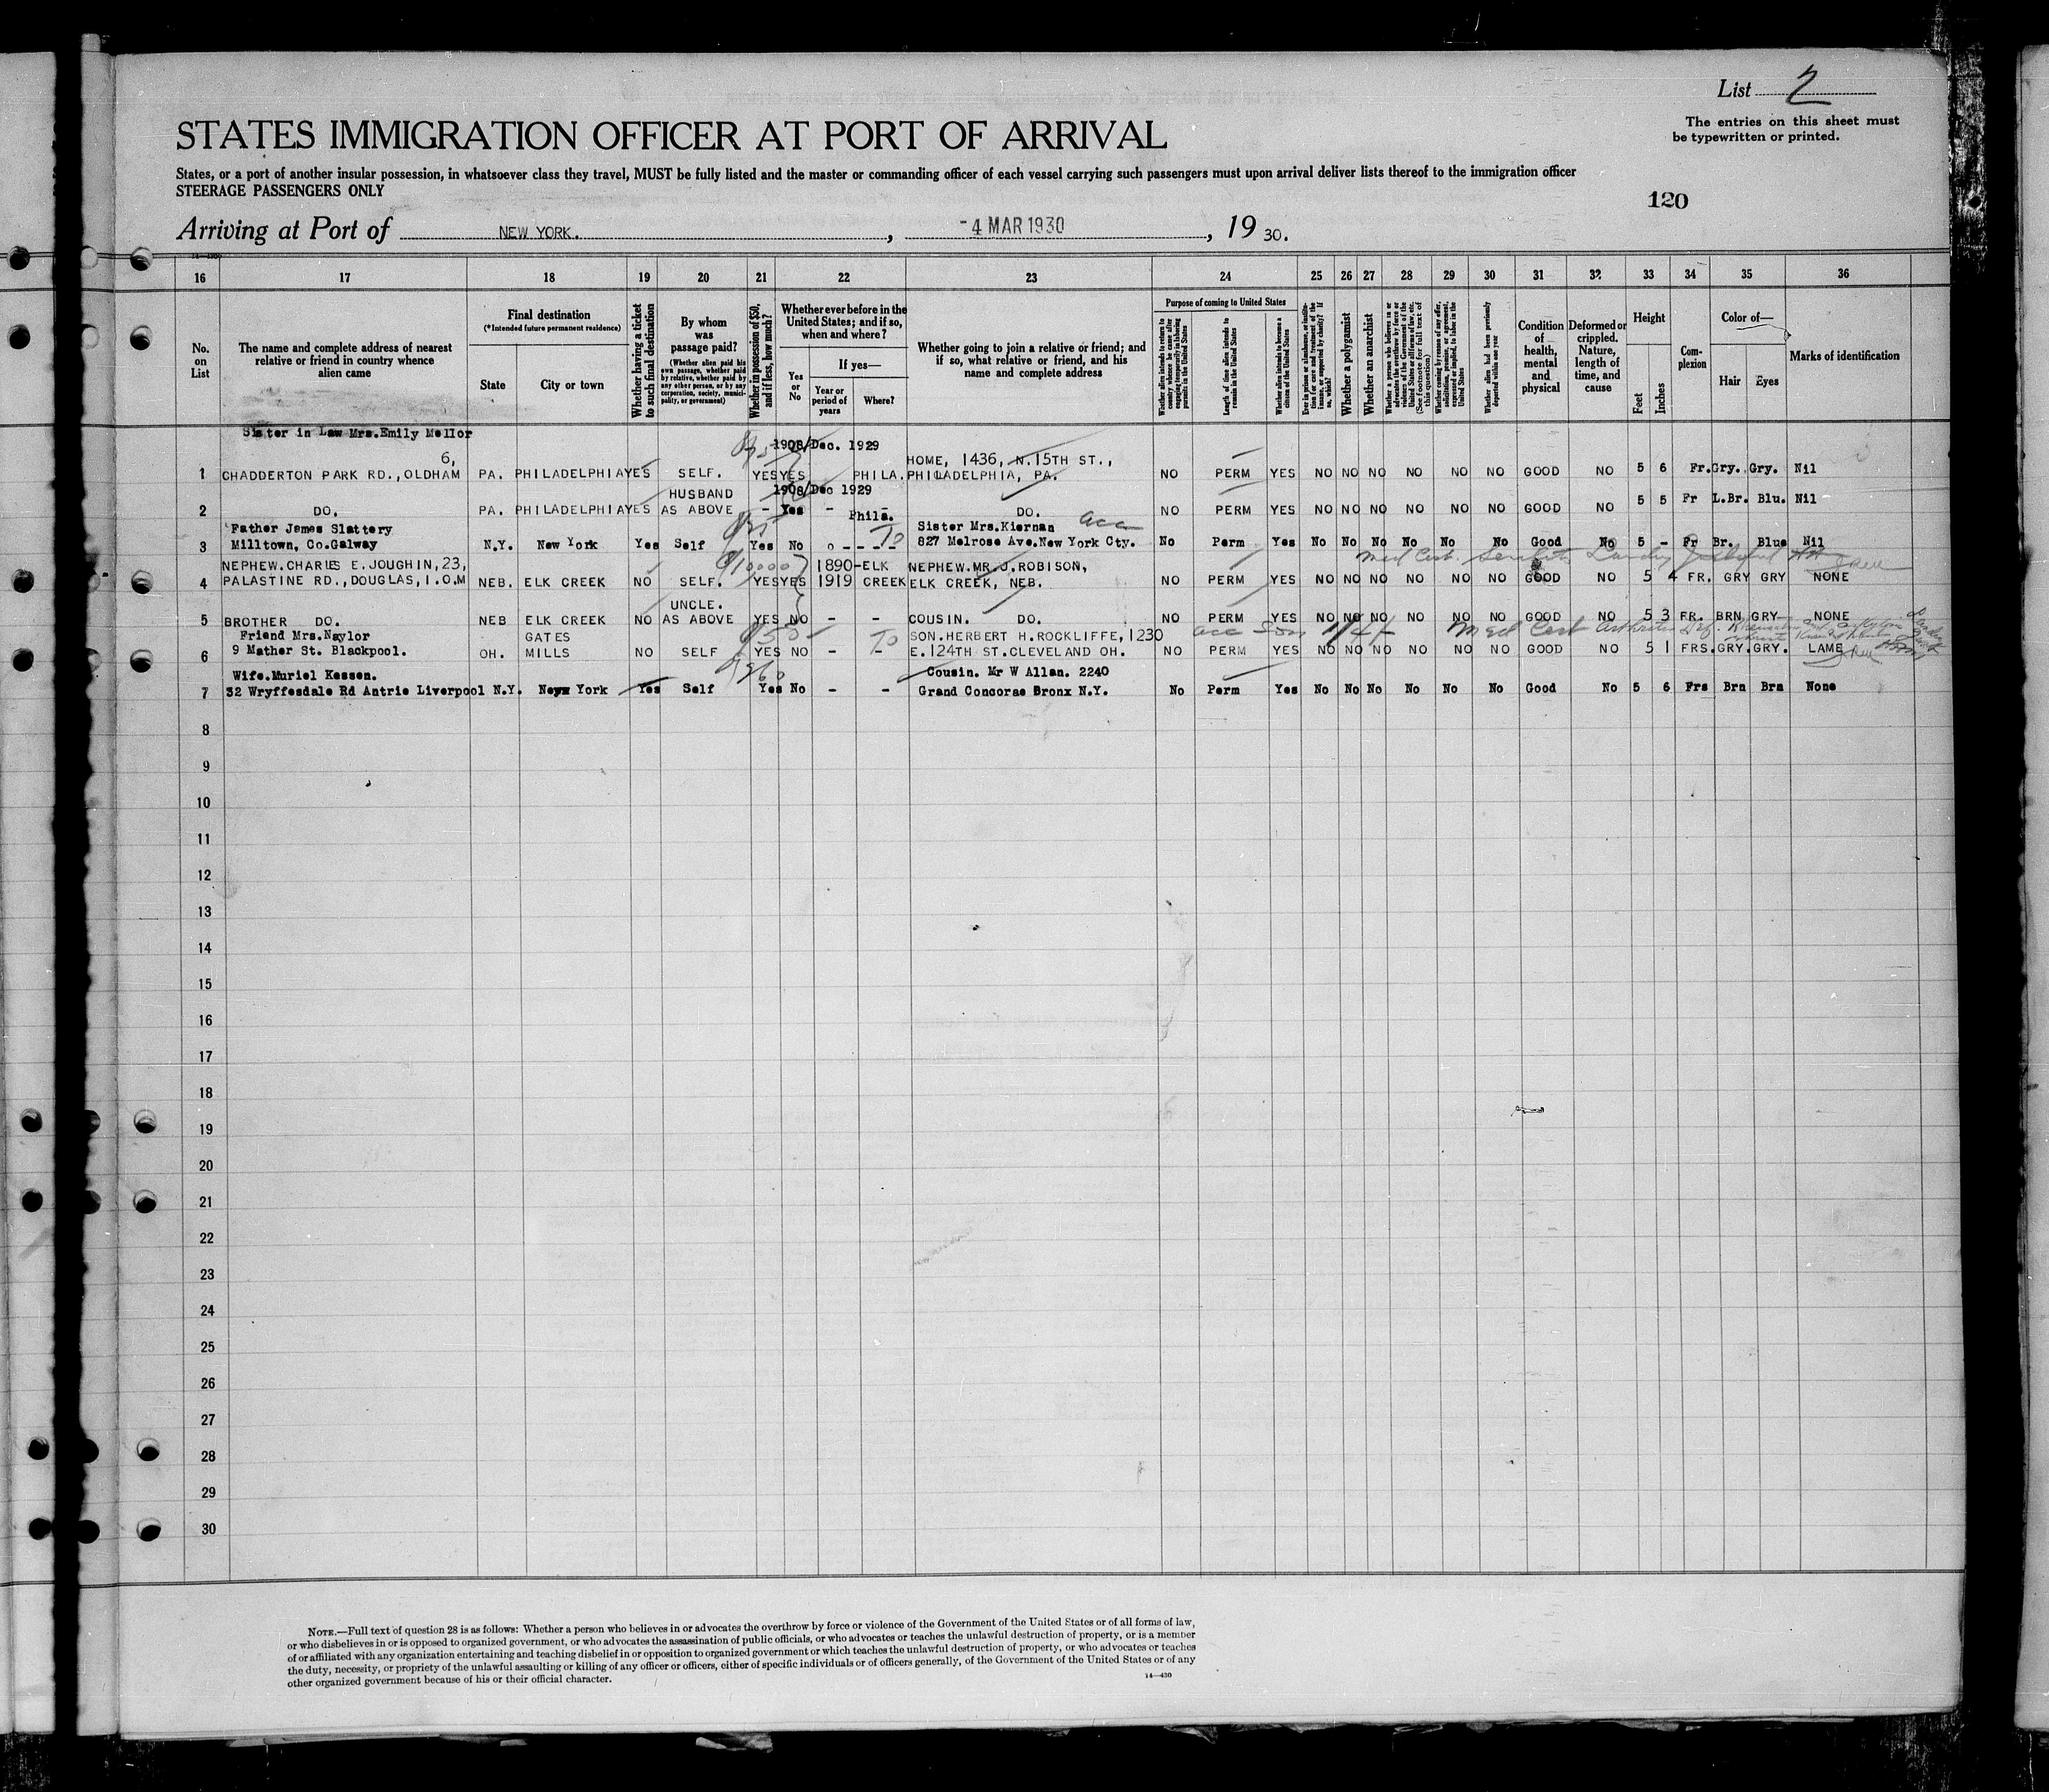 List 2
The entries on this sheet must
be typewritten or printed.
STATES IMMIGRATION OFFICER AT PORT OF ARRIVAL
States, or a port of another insular possession, in whatsoever class they travel, MUST be fully listed and the master or commanding officer of each vessel carrying such passengers must upon arrival deliver lists thereof to the immigration officer
STEERAGE PASSENGERS ONLY
120
Arriving at Port of NEW YORK. , -4 MAR 1930 , 19 30.
16 17 18 19 20 21 22 23 24 25 26 27 28 29 30 31 32 33 34 35 36
No. on List
The name and complete address of nearest relative or friend in country whence alien came
Final destination
(*Intended future permanent residence)
State
City or town
Whether having a ticket to such final destination
By whom was passage paid?
(Whether alien paid his own passage, whether paid by relative, whether paid by any other person, or by any corporation, society, municipality, or government)
Whether in possession of $50, and if less, how much?
Whether ever before in the United States; and if so, when and where?
Yes or No
If yes—
Year or period of years
Where?
Whether going to join a relative or friend; and if so, what relative or friend, and his name and complete address
Purpose of coming to United States
Whether alien intends to return to country whence he came after engaging temporarily in laboring pursuits in the United States
Length of time alien intends to remain in the United States
Whether alien intends to become a citizen of the United States
Ever in prison or almshouse, or institution for care and treatment of the insane, or supported by charity? If so, which?
Whether a polygamist
Whether an anarchist
Whether a person who believes in or advocates the overthrow by force or violence of the Government of the United States or all forms of law, etc. (See footnote for full text of this question)
Whether coming by reason of any offer, solicitation, promise, or agreement, expressed or implied, to labor in the United States
Whether alien had been previously deported within one year
Condition of health, mental and physical
Deformed or crippled. Nature, length of time, and cause
Height
Feet
Inches
Complexion
Color of—
Hair
Eyes
Marks of identification
Sister in Law Mrs.Emily Mellor 1908/Dec. 1929
6, HOME, 1436, N.15TH ST.,
1 CHADDERTON PARK RD.,OLDHAM PA. PHILADELPHIA YES SELF. YES YES PHILA. PHILADELPHIA, PA. NO PERM YES NO NO NO NO NO NO GOOD NO 5 6 Fr. Gry. Gry. Nil
HUSBAND 1908/Dec 1929
2 DO. PA. PHILADELPHIA YES AS ABOVE - Yes - Phila. DO. NO PERM YES NO NO NO NO NO NO GOOD NO 5 5 Fr L.Br. Blu. Nil
Father James Slattery Sister Mrs.Kiernan
3 Milltown, Co.Galway N.Y. New York Yes Self Yes No - - - - 827 Melrose Ave.New York Cty. No Perm Yes No No No No No No Good No 5 - Fr Br. Blue Nil
NEPHEW.CHARLES E.JOUGHIN,23, 10000 1890-ELK NEPHEW.MR J.ROBISON, Med Cert. Senility
4 PALASTINE RD.,DOUGLAS,I.O.M NEB. ELK CREEK NO SELF. YES YES 1919 CREEK ELK CREEK, NEB. NO PERM YES NO NO NO NO NO NO GOOD NO 5 4 FR. GRY GRY NONE
UNCLE.
5 BROTHER DO. NEB ELK CREEK NO AS ABOVE YES NO - - COUSIN. DO. NO PERM YES NO NO NO NO NO NO GOOD NO 5 3 FR. BRN GRY- NONE
Friend Mrs.Naylor GATES SON.HERBERT H.ROCKLIFFE,1230 acc Son Med Cert
6 9 Mather St. Blackpool. OH. MILLS NO SELF YES NO - - E.124TH ST.CLEVELAND OH. NO PERM YES NO NO NO NO NO NO GOOD NO 5 1 FRS. GRY. GRY. LAME
Wife.Muriel Kessen. Cousin. Mr W Allan. 2240
7 32 Wryffesdale Rd Antrie Liverpool N.Y. New York Yes Self Yes No - - Grand Concorse Bronx N.Y. No Perm Yes No No No No No No Good No 5 6 Frs Brn Brn None
8
9
10
11
12
13
14
15
16
17
18
19
20
21
22
23
24
25
26
27
28
29
30
NOTE.—Full text of question 28 is as follows: Whether a person who believes in or advocates the overthrow by force or violence of the Government of the United States or of all forms of law,
or who disbelieves in or is opposed to organized government, or who advocates the assassination of public officials, or who advocates or teaches the unlawful destruction of property, or is a member
of or affiliated with any organization entertaining and teaching disbelief in or opposition to organized government or which teaches the unlawful destruction of property, or who advocates or teaches
the duty, necessity, or propriety of the unlawful assaulting or killing of any officer or officers, either of specific individuals or of officers generally, of the Government of the United States or of any
other organized government because of his or their official character.
14—430